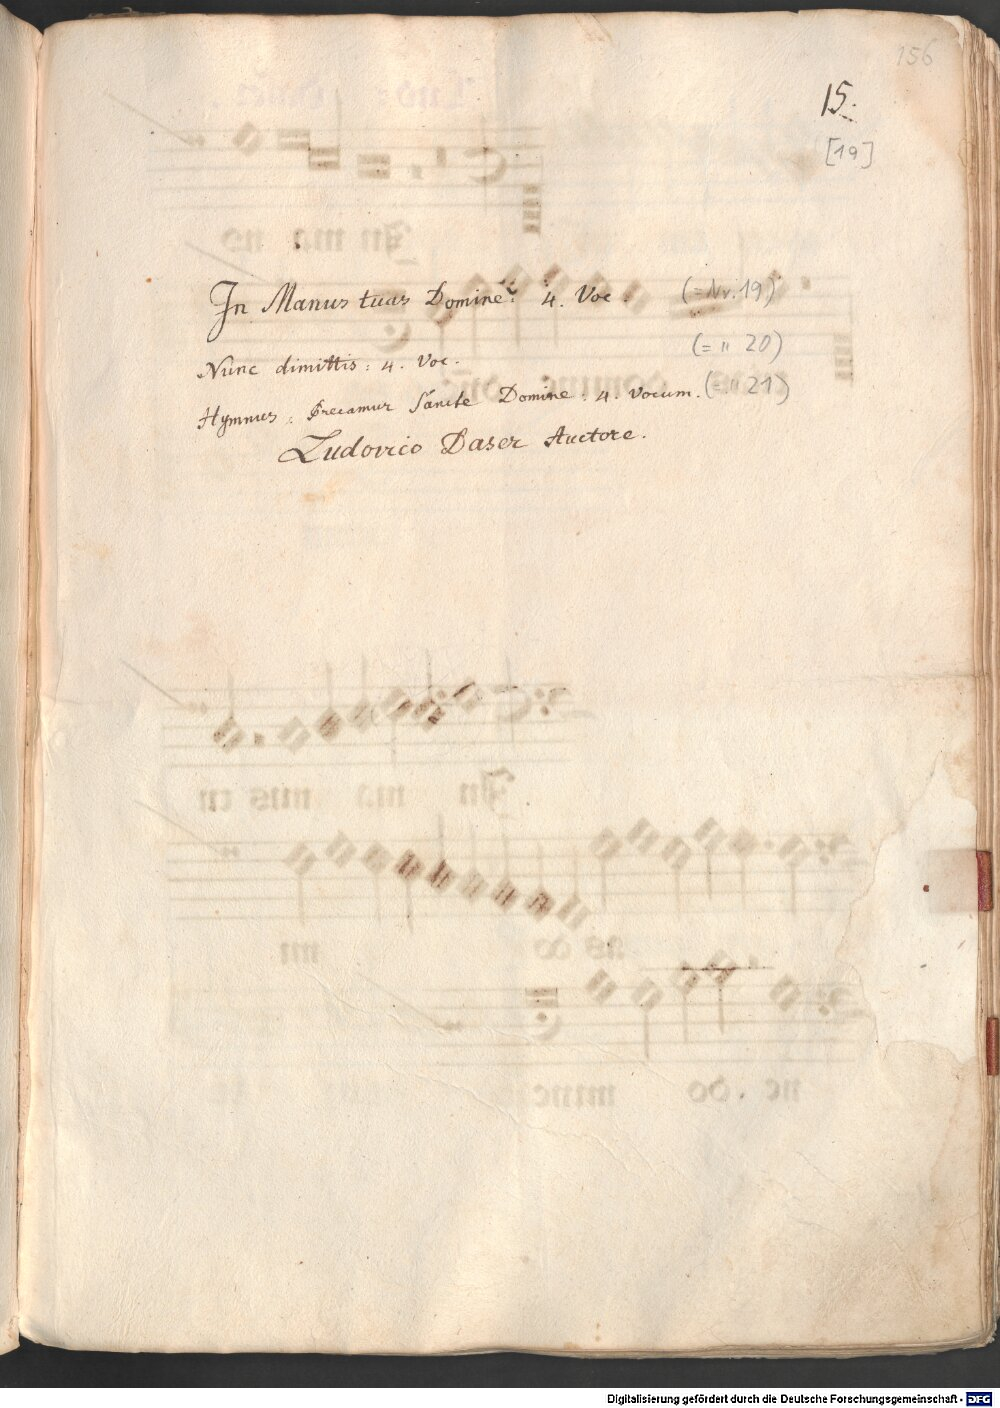 156
15.
[19]
In Manus tuas Domine: 4. Voc. (=Nr. 19)
Nunc dimittis: 4. Voc. (= " 20)
Hymnus: Precamur Sancte Domine: 4. Vocum. (= " 21)
Ludovico Daser Auctore.
Digitalisierung gefördert durch die Deutsche Forschungsgemeinschaft - DFG